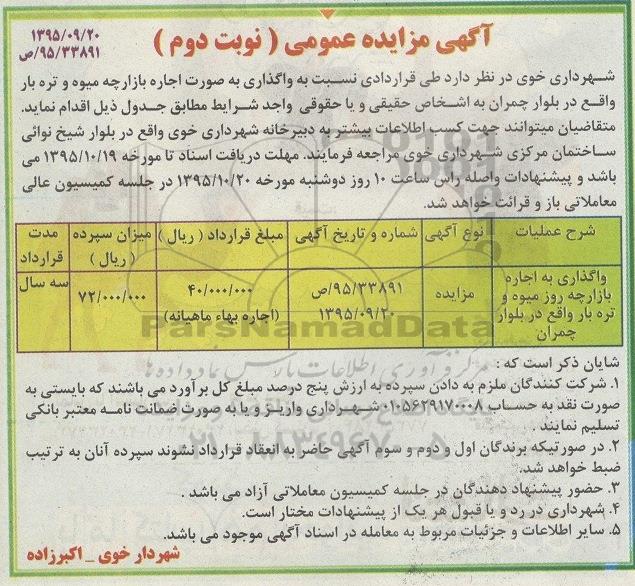 آگهی مزایده عمومی ( نوبت دوم )
۱۳۹۵/۰۹/۲۰
۹۵/۳۳۸۹۱/ص
شهرداری خوی در نظر دارد طی قراردادی نسبت به واگذاری به صورت اجاره بازارچه میوه و تره بار
واقع در بلوار چمران به اشخاص حقیقی و یا حقوقی واجد شرایط مطابق جدول ذیل اقدام نماید.
متقاضیان میتوانند جهت کسب اطلاعات بیشتر به دبیرخانه شهرداری خوی واقع در بلوار شیخ نوائی
ساختمان مرکزی شهرداری خوی مراجعه فرمایند. مهلت دریافت اسناد تا مورخه ۱۳۹۵/۱۰/۱۹ می
باشد و پیشنهادات واصله راس ساعت ۱۰ روز دوشنبه مورخه ۱۳۹۵/۱۰/۲۰ در جلسه کمیسیون عالی
معاملاتی باز و قرائت خواهد شد.
شرح عملیات | نوع آگهی | شماره و تاریخ آگهی | مبلغ قرارداد ( ریال ) | میزان سپرده ( ریال ) | مدت قرارداد
واگذاری به اجاره بازارچه روز میوه و تره بار واقع در بلوار چمران | مزایده | ۹۵/۳۳۸۹۱/ص ۱۳۹۵/۰۹/۲۰ | ۴۰/۰۰۰/۰۰۰ (اجاره بهاء ماهیانه) | ۷۲/۰۰۰/۰۰۰ | سه سال
ParsNamadData
شایان ذکر است که :
۱. شرکت کنندگان ملزم به دادن سپرده به ارزش پنج درصد مبلغ کل برآورد می باشند که بایستی به
صورت نقد به حساب ۰۱۰۵۶۲۹۱۷۰۰۰۸ شهرداری واریز و یا به صورت ضمانت نامه معتبر بانکی
تسلیم نمایند .
۲. در صورتیکه برندگان اول و دوم و سوم آگهی حاضر به انعقاد قرارداد نشوند سپرده آنان به ترتیب
ضبط خواهد شد.
۳. حضور پیشنهاد دهندگان در جلسه کمیسیون معاملاتی آزاد می باشد .
۴. شهرداری در رد و یا قبول هر یک از پیشنهادات مختار است.
۵. سایر اطلاعات و جزئیات مربوط به معامله در اسناد آگهی موجود می باشد.
شهردار خوی _ اکبرزاده